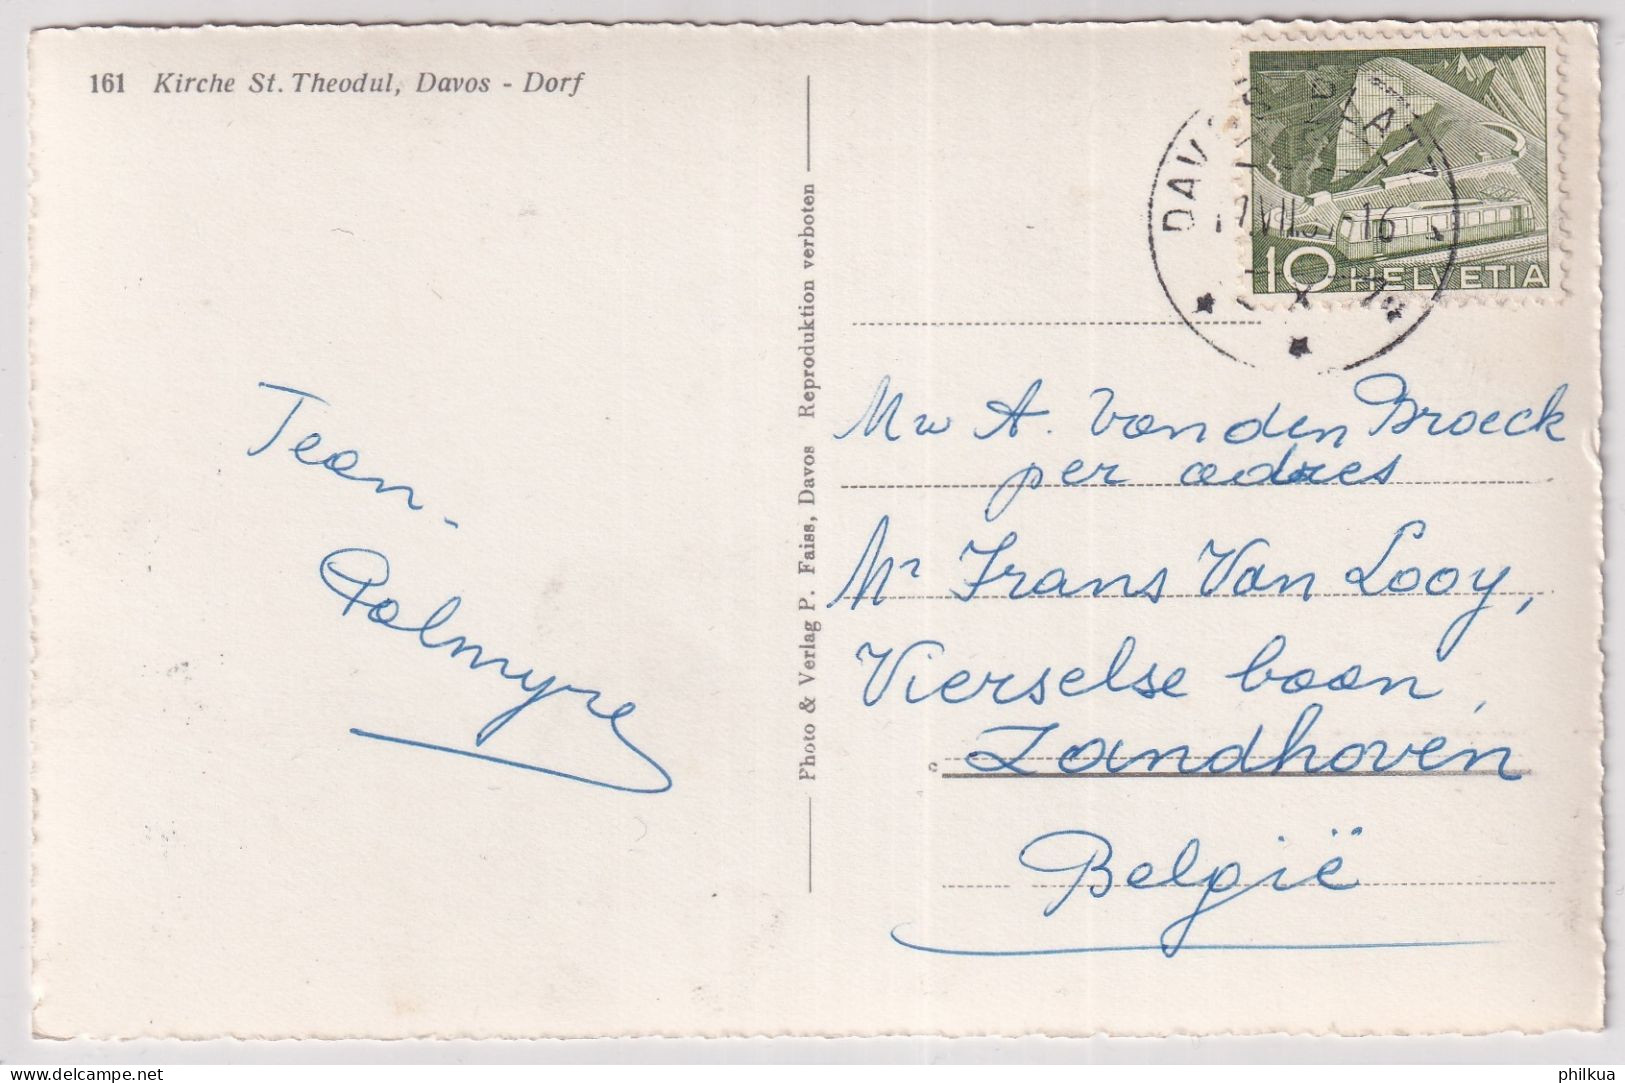 161 Kirche St. Theodul, Davos - Dorf
Jean -
Palmyre
Photo & Verlag P. Faiss, Davos Reproduktion verboten
DAVOS PLATZ
10 HELVETIA
Mw A. Van den Broeck
per adres
Mr Frans Van Looy,
Vierselse baan,
Zandhoven
België
philkua